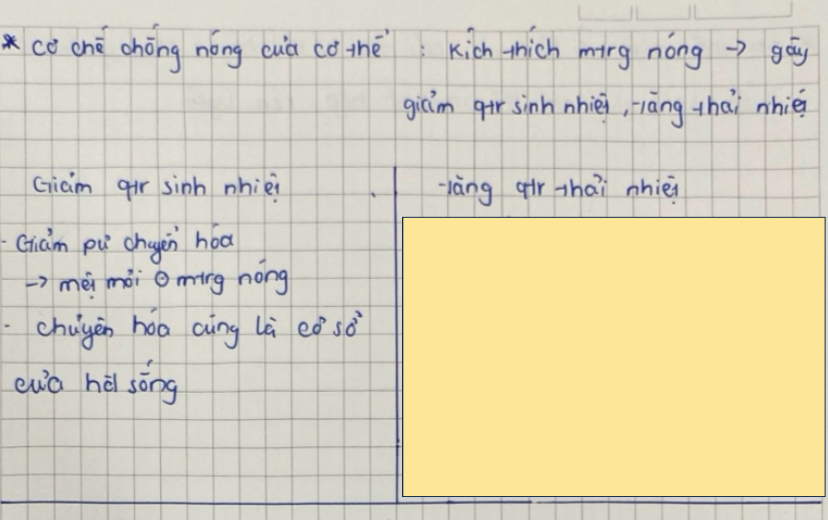 * Cơ chế chống nóng của cơ thể : Kích thích mtrg nóng → gây
giảm qtr sinh nhiệt, tăng thải nhiệt
Giảm qtr sinh nhiệt
- Giảm pứ chuyển hóa
→ mệt mỏi ở mtrg nóng
- chuyển hóa cũng là cơ sở
của hđ sống
tăng qtr thải nhiệt